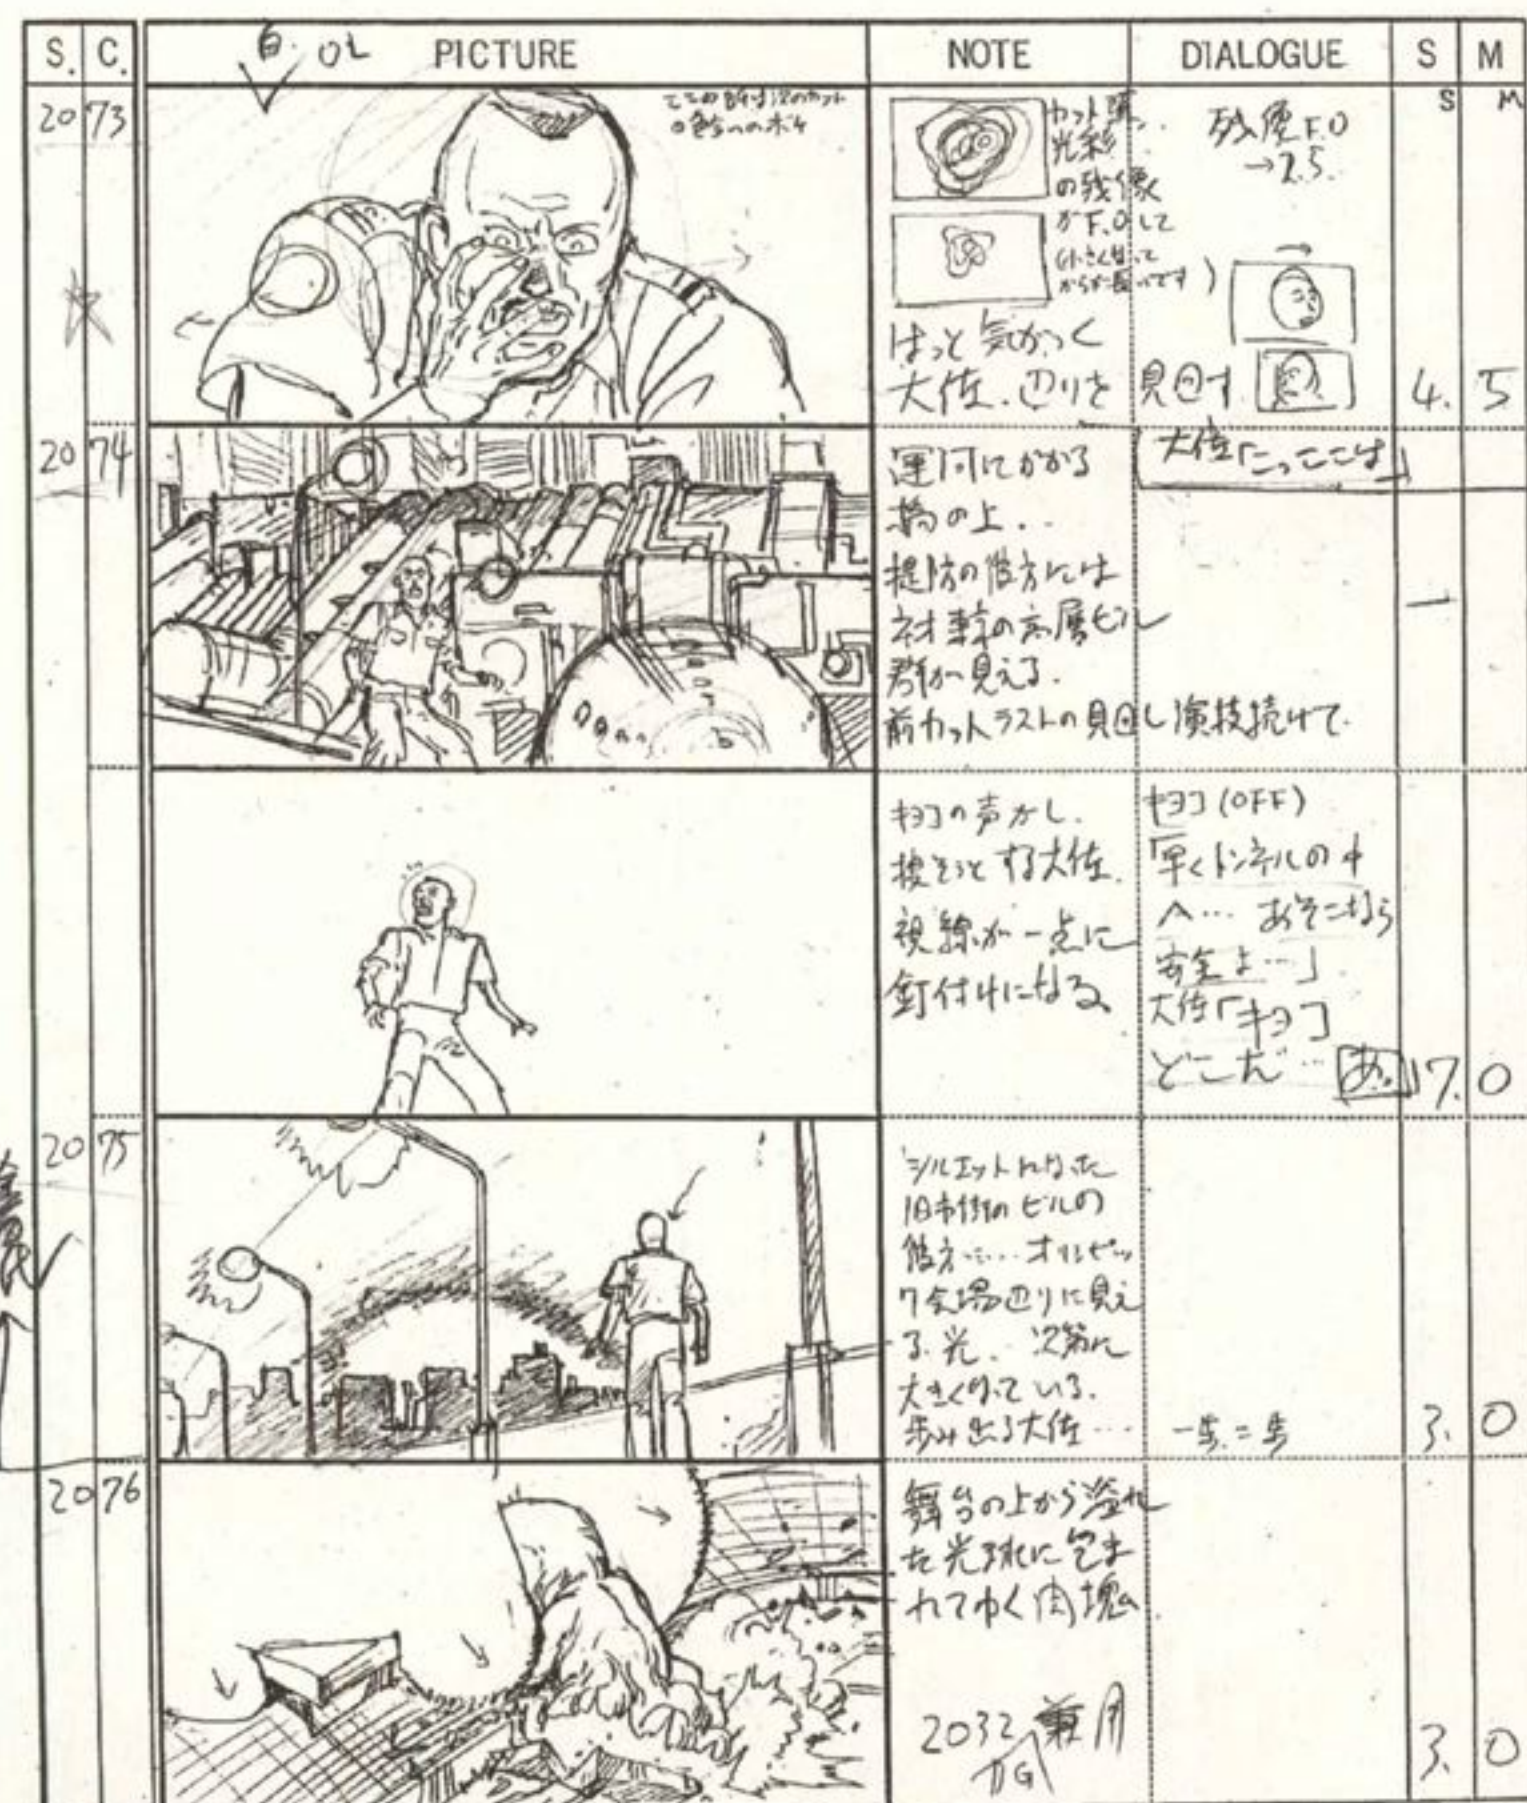 S. C. PICTURE NOTE DIALOGUE S M
白 OL
S M
20 73
カット頭..
光彩
の残像
がF.Oして
残像F.O
→2.5.
はっと気がつく
大佐.辺りを 見回す.
4. 5
20 74
運河にかかる
橋の上..
堤防の彼方には
ネオ東京の高層ビル
群が見える.
前カットラストの見回し演技続けて.
大佐「こっここは」
キヨコの声がし.
捜そうとする大佐.
視線が一点に
釘付けになる。
キヨコ(OFF)
「早くトンネルの中
へ… あそこなら
安全よ…」
大佐「キヨコ
どこだ… あ。」
17. 0
20 75
シルエットになった
旧市街のビルの
彼方に…オリンピッ
ク会場辺りに見え
る.光.. 次第に
大きくなっている.
歩み出る大佐…
一歩.二歩
3. 0
2076
舞台の上から溢れ
た光球に包ま
れてゆく肉塊
2032 兼用
BG
3. 0